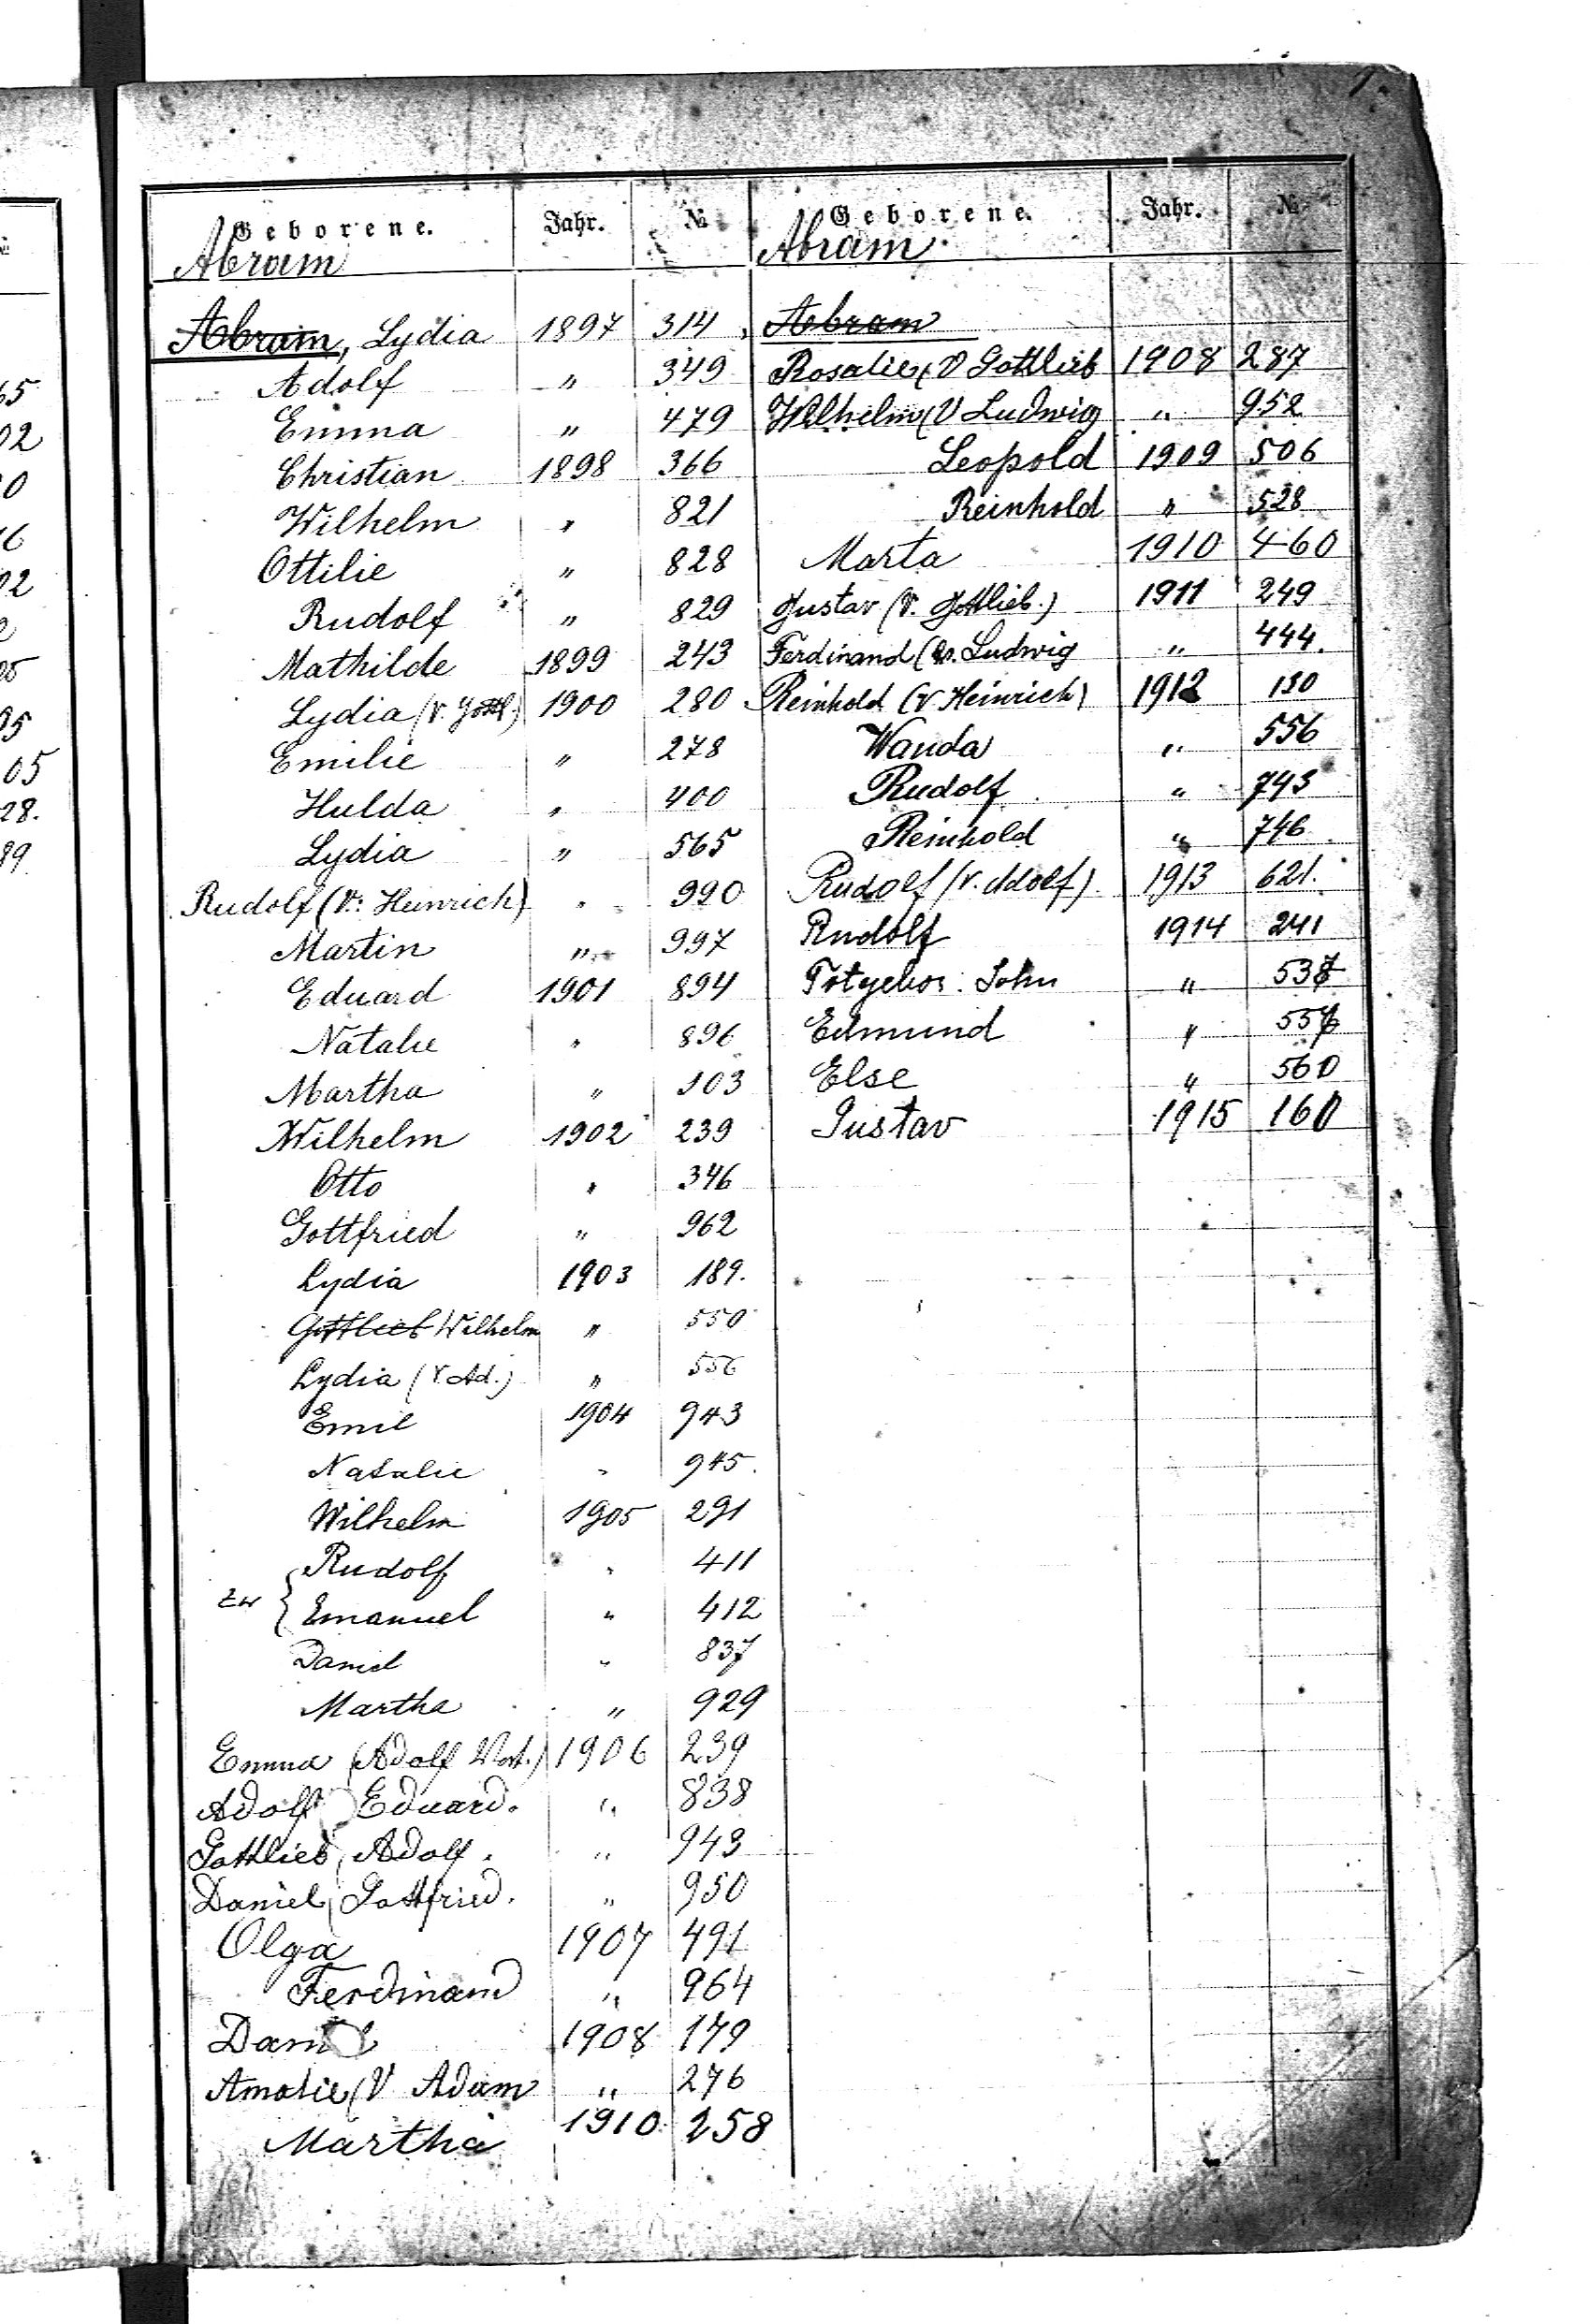 1.
Geborene. Jahr. №
Abram
Abram, Lydia 1897 314
Adolf " 349
Emma " 479
Christian 1898 366
Wilhelm " 821
Ottilie " 828
Rudolf " 829
Mathilde 1899 243
Lydia (V. Gottl.) 1900 280
Emilie " 278
Hulda " 400
Lydia " 565
Rudolf (V.: Heinrich) " 990
Martin " 997
Eduard 1901 894
Natalie " 896
Martha " 103
Wilhelm 1902 239
Otto " 346
Gottfried " 962
Lydia 1903 189.
Gottlieb Wilhelm " 550
Lydia (V. Ad.) " 556
Emil 1904 943
Natalie " 945.
Wilhelm 1905 291
Rudolf " 411
Zw { Emanuel " 412
Daniel " 837
Martha " 929
Emma (Adolf 1906 239
Adolf Eduard. " 838
Gottlieb, Adolf. " 943
Daniel, Gottfried. " 950
Olga 1907 491
Ferdinand " 964
Daniel 1908 179
Amalie (V Adam " 276
Martha 1910 258
Geborene. Jahr. №
Abram
Abram
Rosalie (V Gottlieb 1908 287
Wilhelm (V Ludwig) " 952
Leopold 1909 506
Reinhold " 528
Marta 1910 460
Gustav (V. Gottlieb.) 1911 249
Ferdinand (V. Ludwig " 444.
Reinhold (V Heinrich) 1912 130
Wanda " 556
Rudolf " 743
Reinhold " 746
Rudolf (V. Adolf) 1913 621.
Rudolf 1914 241
Totgebor. Sohn " 537
Edmund " 557
Else " 560
Gustav 1915 160
65
02
0
16
02
2
05
95
05
28.
89